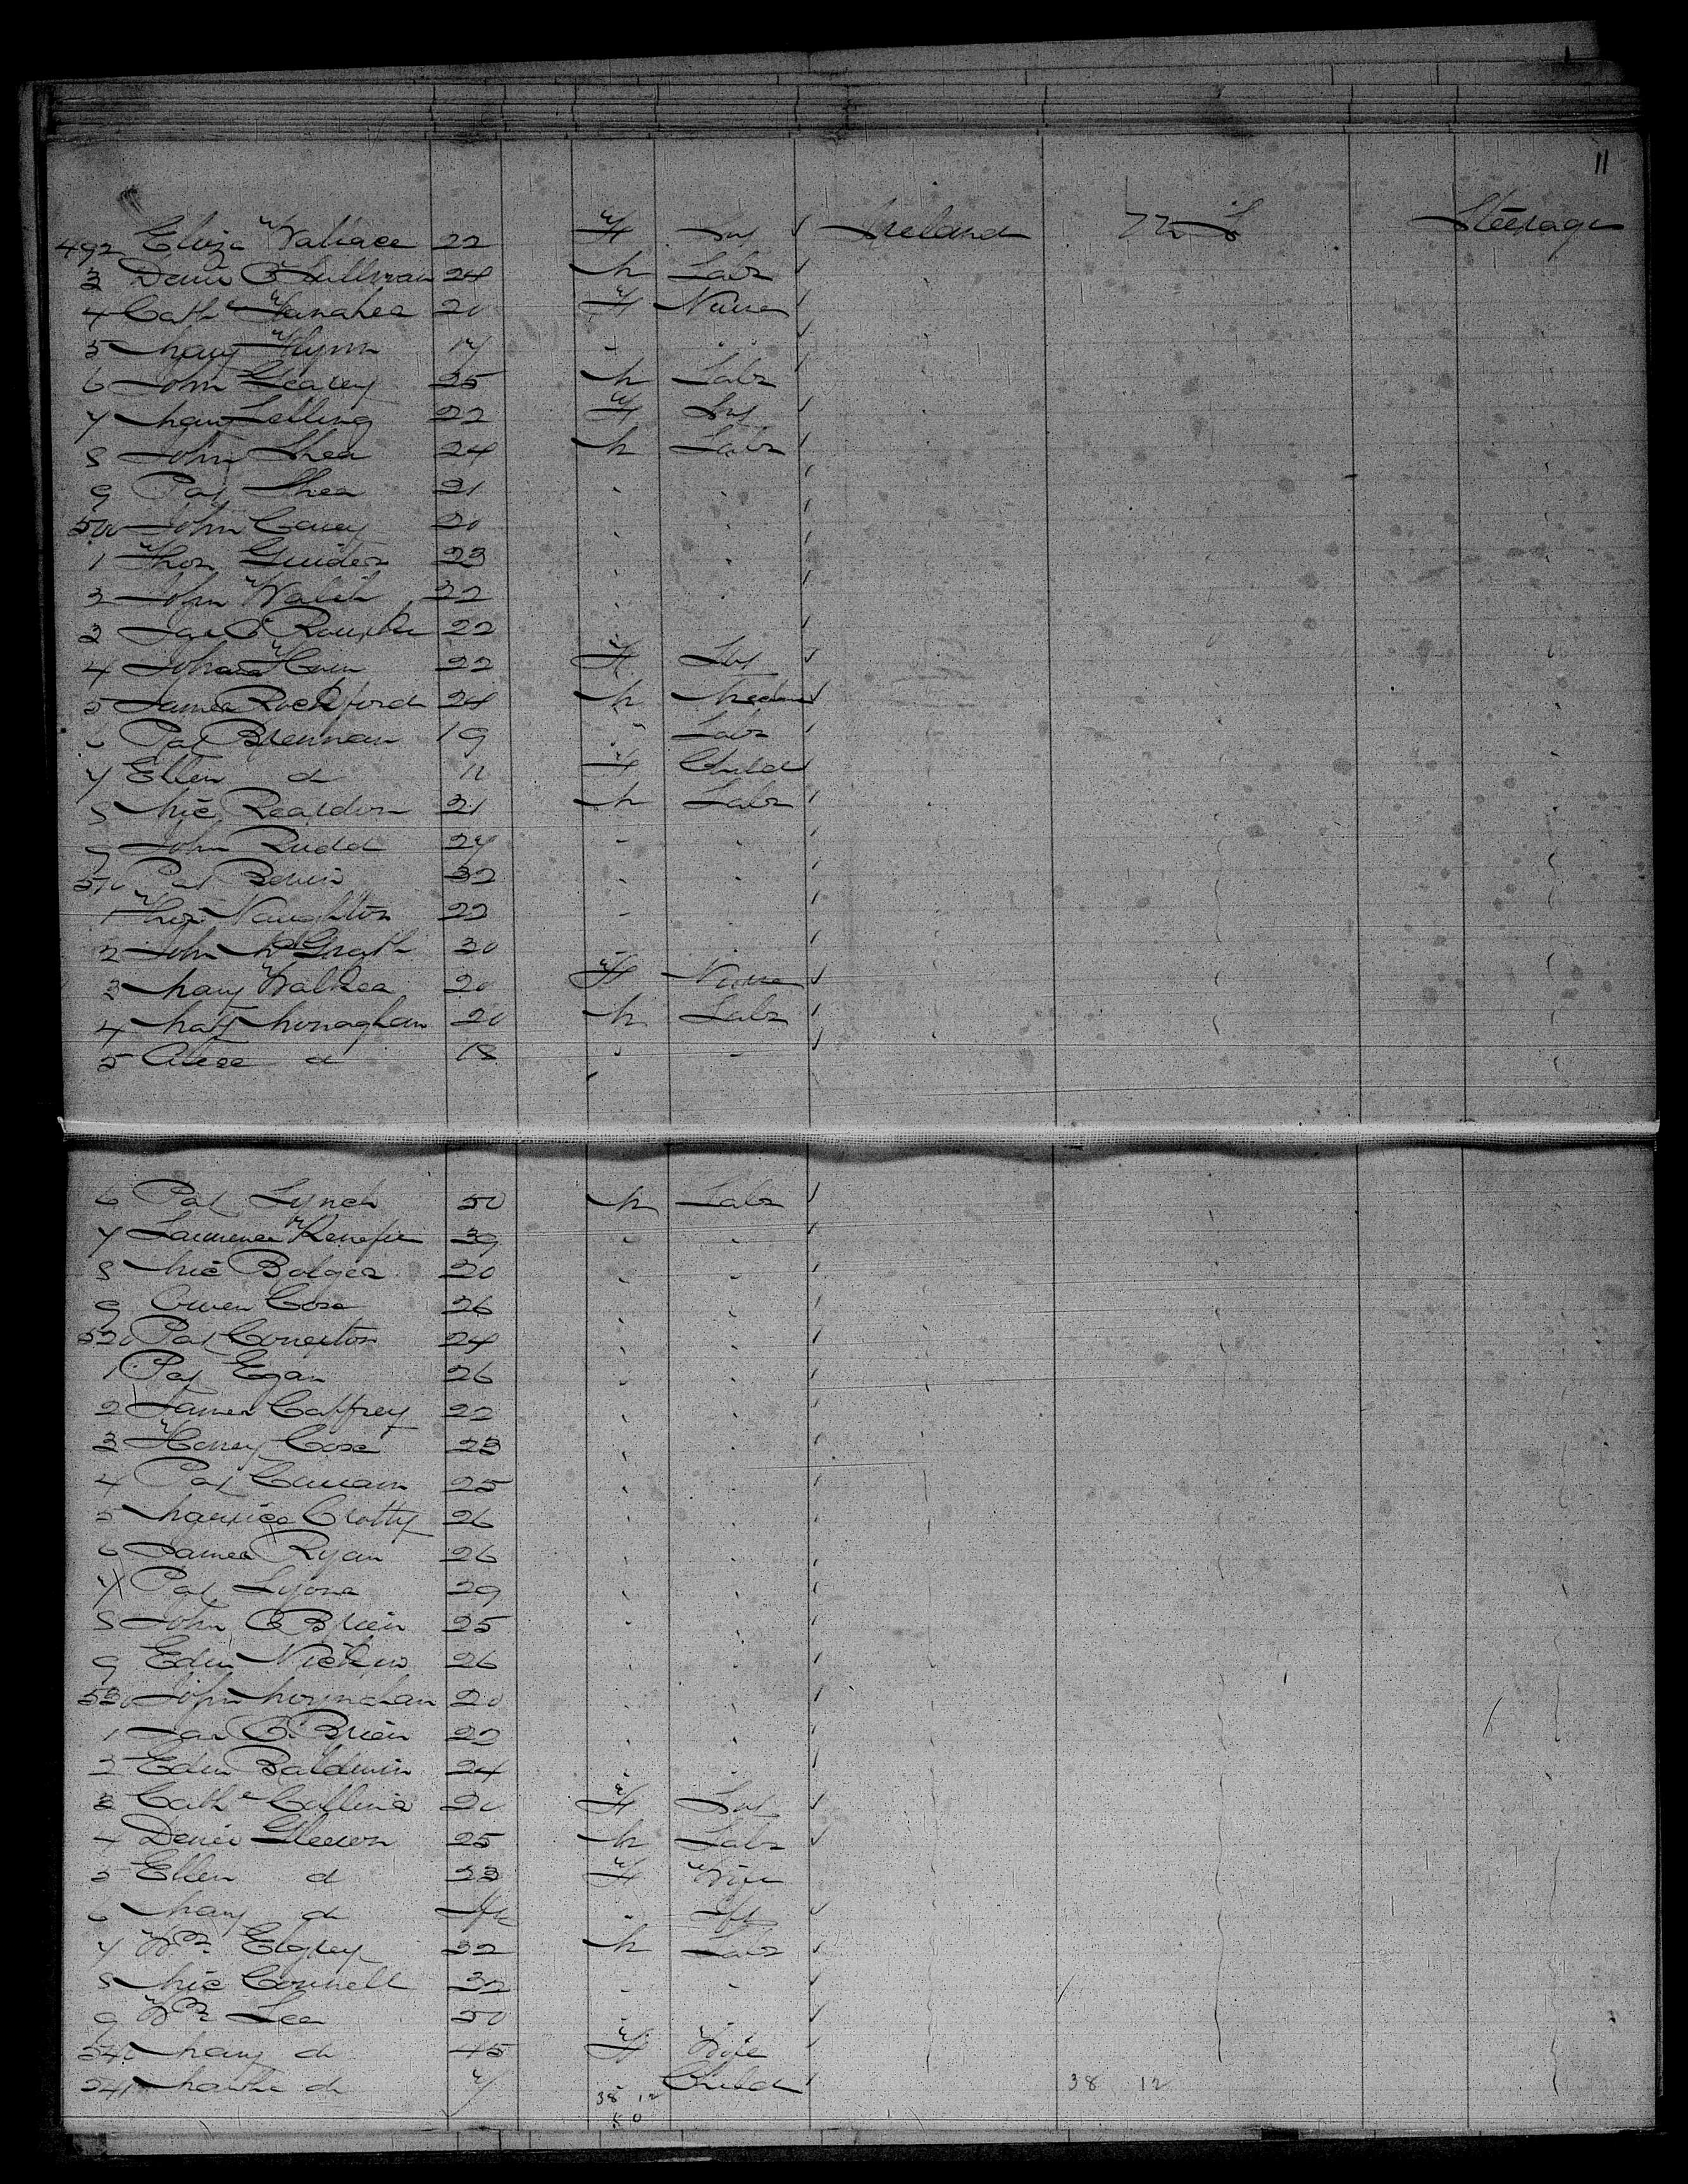 11
492 Eliza Wallace 22 F Srv Ireland U S Steerage
3 Denis O Sullivan 24 M Labr
4 Cath Lanahea 20 F Nurse
5 Mary Flynn 17 " "
6 John Gearey 25 M Labr
7 Mary Lelling 22 F Srv
8 John Shea 24 M Labr
9 Pat Shea 21 " "
500 John Carey 20 " "
1 Thos Guider 23 " "
2 John Walsh 22 " "
3 Jas O Rourke 22 " "
4 Johana 22 F Srv
5 James Rochford 24 M
6 Pat Brennan 19 " Labr
7 Ellen do 11 F Child
8 Mic Reardon 21 M Labr
9 John Rudd 27 " "
510 Pat 32 " "
1 Thos Naughton 22 " "
2 John McGrath 30 " "
3 Mary Walhea 20 F Nurse
4 Matt Monaghan 20 M Labr
5 do 18 " "
6 Pat Lynch 50 M Labr
7 Laurence 39 " "
8 Mic Bolger 20 " "
9 Owen Cox 26 " "
520 Pat Conerton 24 " "
1 Pat Egan 26 " "
2 James Caffrey 22 " "
3 Henry Cox 23 " "
4 Pat Curran 25 " "
5 Maurice Crotty 26 " "
6 James Ryan 26 " "
7 Pat Lyons 29 " "
8 John O Brien 25 " "
9 Edm 26 " "
530 John Moynahan 20 " "
1 Jas O Brien 22 " "
2 Edm Baldwin 24 " "
3 Cath Collins 20 F Srv
4 Denis Gleeson 25 M Labr
5 Ellen do 23 F Wife
6 Mary do " Inf
7 Wm Egley 32 M Labr
8 Mic Connell 32 " "
9 Wm Lee 50 " "
540 Mary do 45 F Wife
541 Martha do 7 Child 38 12
38 12
50